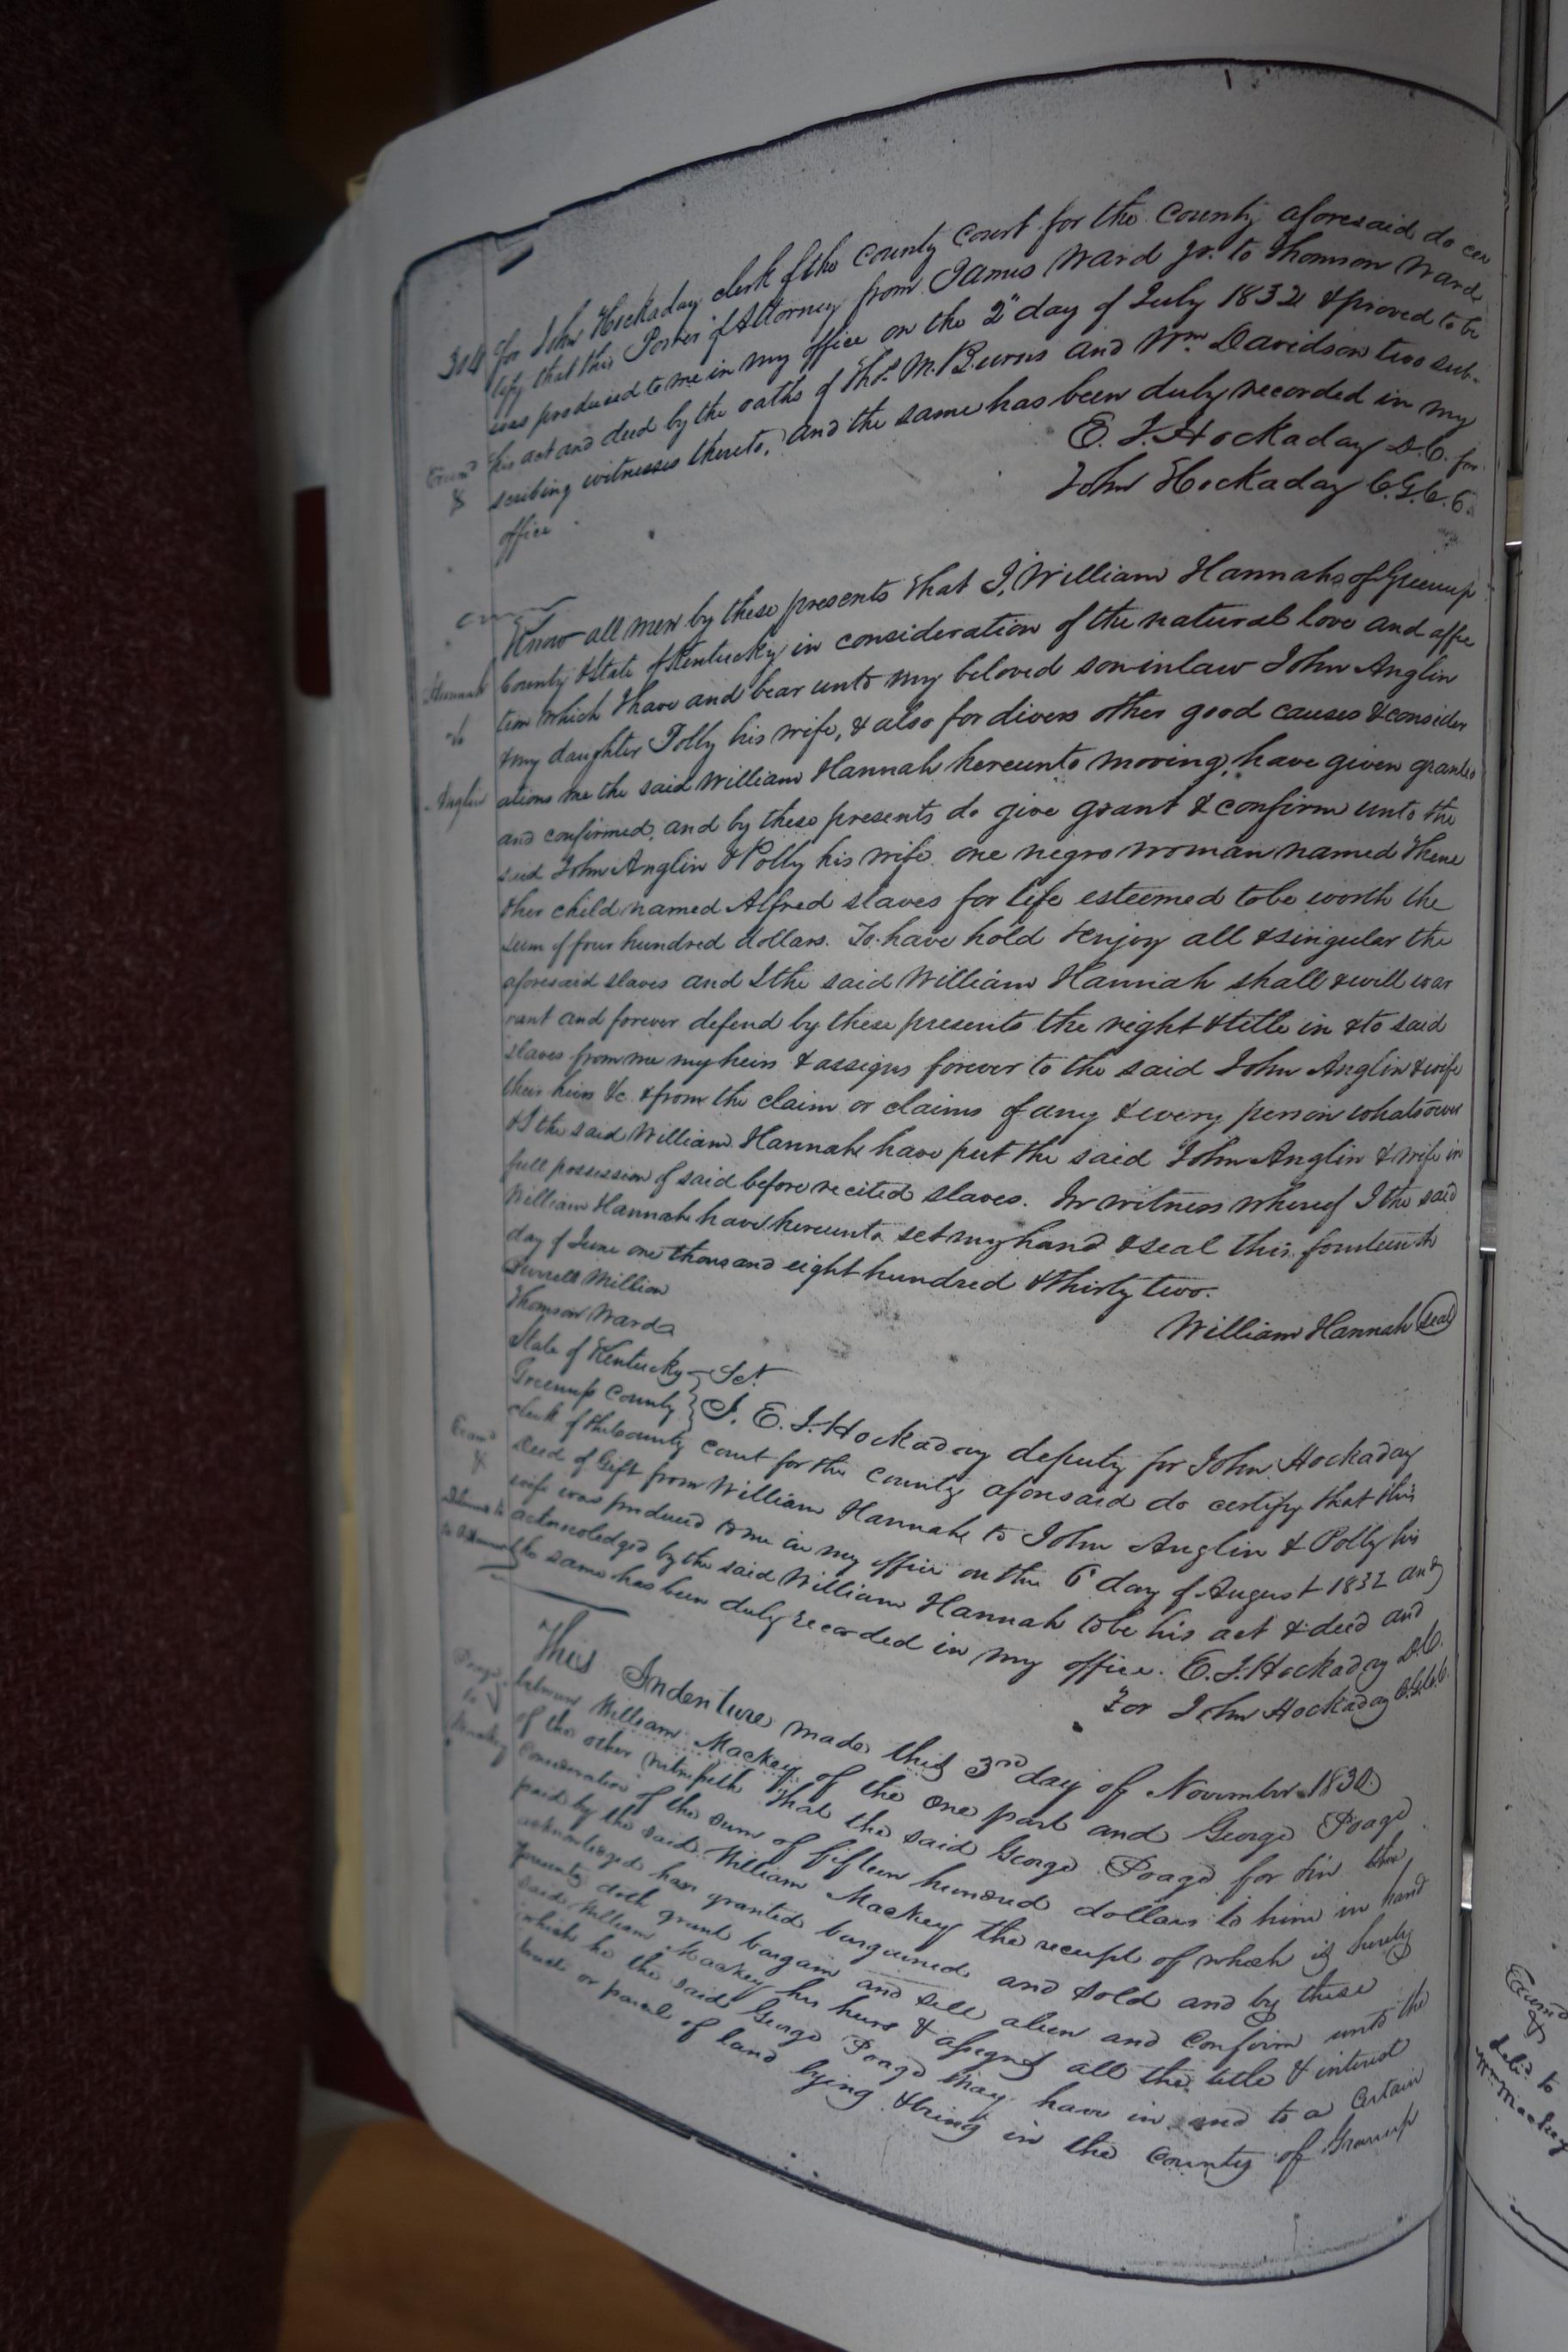 304
for John Hockaday clerk of the County Court for the County aforesaid do cer
tify that this Power of Attorney from James Ward Jr. to Thomson Ward
was produced to me in my office on the 2" day of July 1832 & proved to be
his act and deed by the oaths of Thos. M. Burns and Wm Davidson two sub-
scribing witnesses thereto, and the same has been duly recorded in my
office
E. J. Hockaday D.C. for
John Hockaday C.G.C.C.
Examd
&
Know all men by these presents that I, William Hannah of Greenup
County & State of Kentucky in consideration of the natural love and affec
tion which I have and bear unto my beloved son-in law John Anglin
& my daughter Polly his wife, & also for divers other good causes & consider
ations me the said William Hannah hereunto moving, have given granted
and confirmed, and by these presents do give grant & confirm unto the
said John Anglin & Polly his wife one negro woman named
& her child named Alfred slaves for life esteemed to be worth the
sum of four hundred dollars. To have hold & enjoy all & singular the
aforesaid slaves and I the said William Hannah shall & will war
rant and forever defend by these presents the right & title in & to said
slaves from me my heirs & assigns forever to the said John Anglin & wife
their heirs &c. & from the claim or claims of any & every person whatsoever
& I the said William Hannah have put the said John Anglin & wife in
full possession of said before recited slaves. In witness whereof I the said
William Hannah have hereunto set my hand & seal this fourteenth
day of June one thousand eight hundred & thirty two.
Hannah
to
Anglin
Burrell Million
Thomson Ward
William Hannah seal
State of Kentucky Sct.
Greenup County } I, E. J. Hockaday deputy for John Hockaday
clerk of the County Court for the County aforesaid do certify that this
Deed of Gift from William Hannah to John Anglin & Polly his
wife was produced to me in my office on the 6 day of August 1832 and
acknowledged by the said William Hannah to be his act & deed and
the same has been duly recorded in my office. E. J. Hockaday D.C.
For John Hockaday C.G.C.C.
Examd
&
This Indenture made this 3rd day of November 1830
between William Mackey of the one part and George Poage
of the other witnesseth that the said George Poage for & in
Consideration of the sum of fifteen hundred dollars to him in hand
paid by the said William Mackey the receipt of which is hereby
acknowledged has granted bargained and sold and by these
presents doth grant bargain and sell alien and Confirm unto the
said William Mackey his heirs & assigns all the title & interest
which he the said George Poage may have in and to a Certain
tract or parcel of land lying & being in the County of Greenup
Poage
to
Mackey
Examd
&
Deld to
Wm Mackey